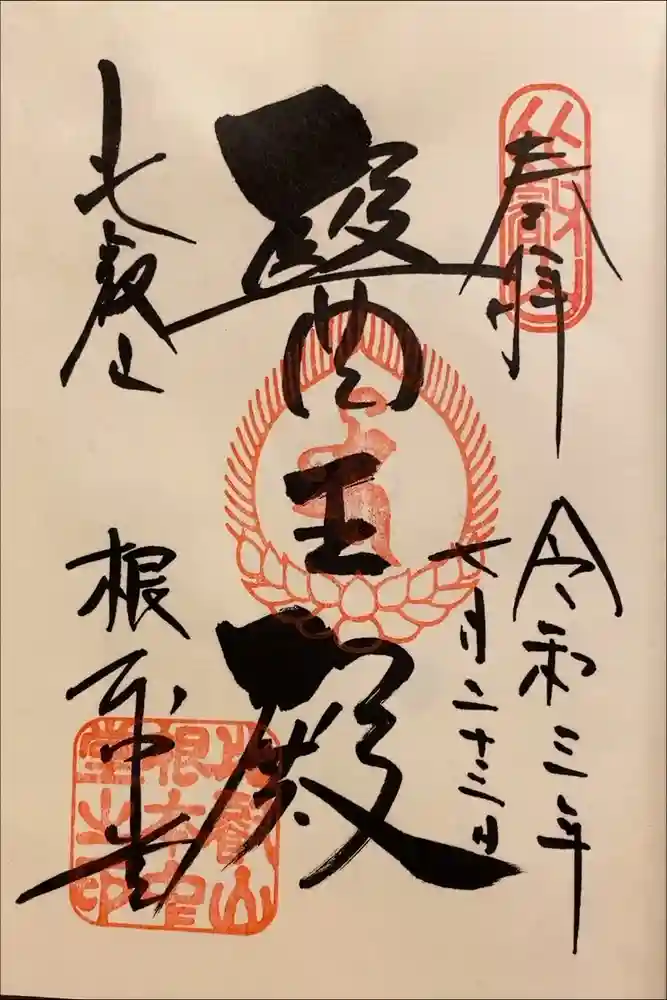 奉拝
比叡山
令和三年
七月二十三日
醫王殿
比叡山
根本中堂
比叡山
根本中
堂之印